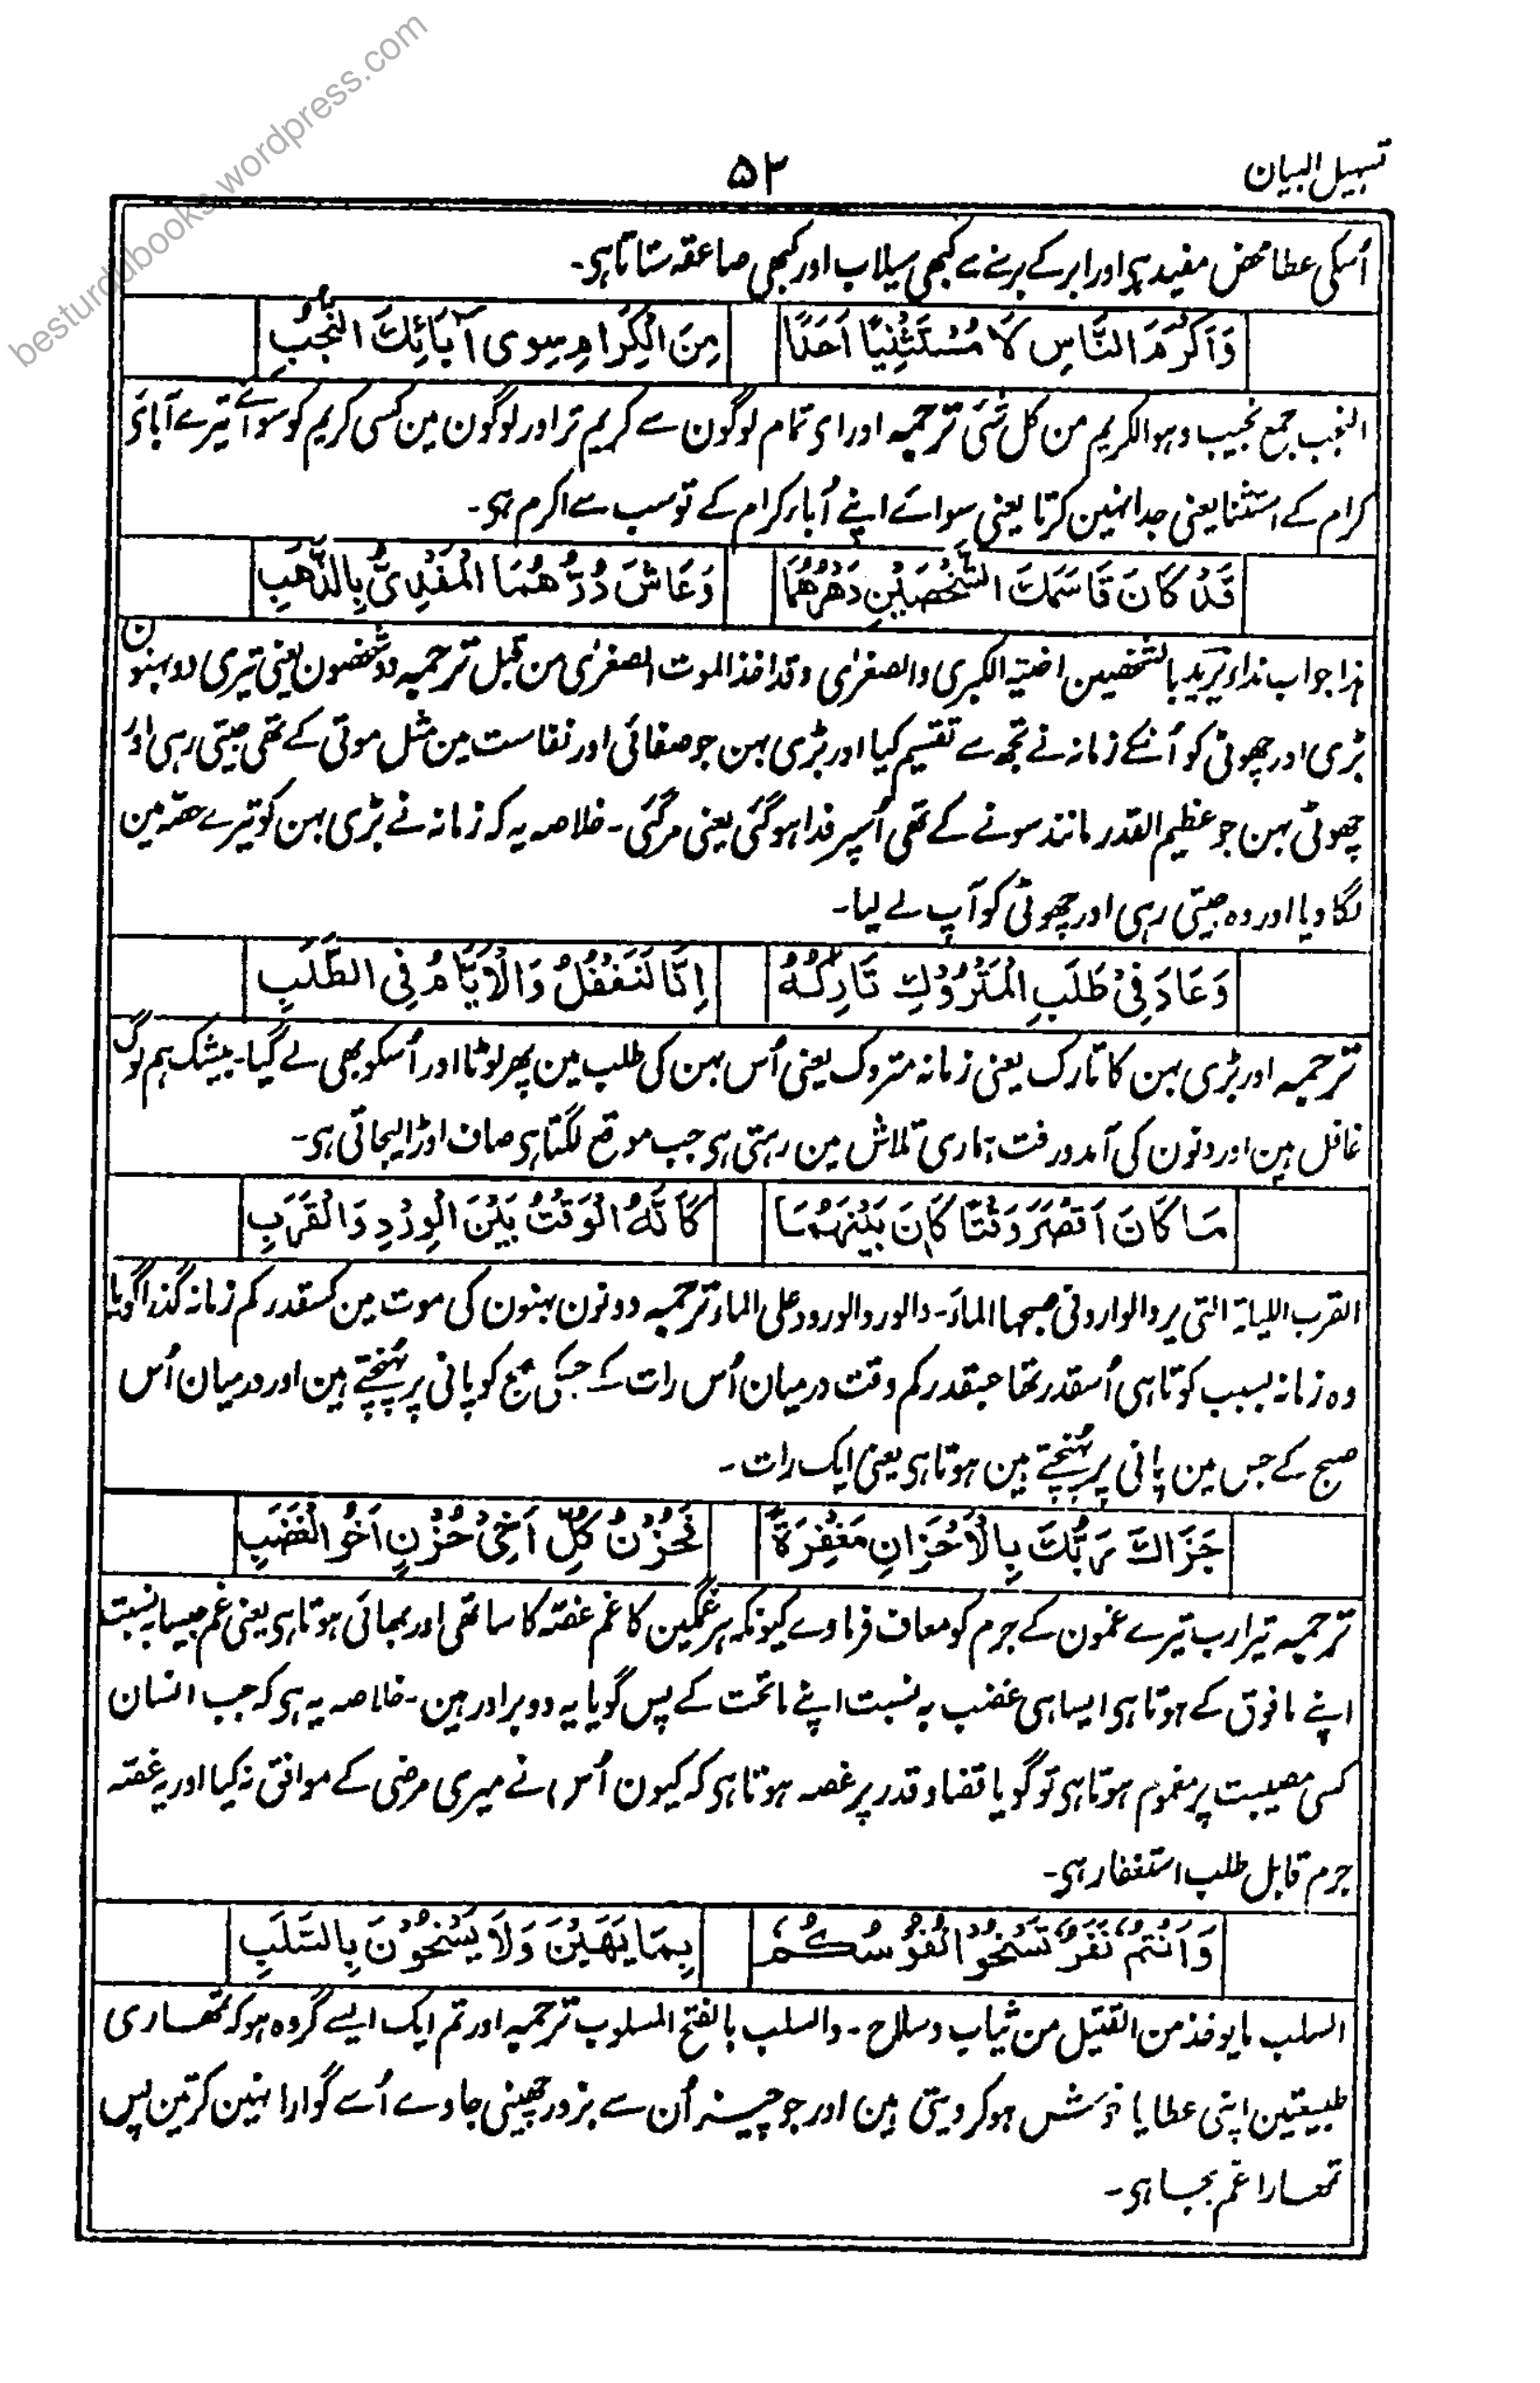 besturdubooks.wordpress.com
تسہیل البیان
۵۲
اُسکی عطا محض مفید ہی اور ابر کے برنے سے کبھی سیلاب اور کبھی صاعقہ ستاتا ہی۔
وَاَكْرَمَ النَّاسِ لَا مُسْتَثْنِيًا اَحَدًا مِنَ الْكِرَامِ سِوى آبَائِكَ النُّجُبُ
النجب جمع نجیب وہو الکریم من کل شئی ترجمہ اور ای تمام لوگون سے کریم تر اور لوگون مین کسی کریم کو سوائے تیرے آبائی
کرام کے استثنا یعنی جدا نہین کرتا یعنی سوائے اپنے اُباء کرام کے تو سب سے اکرم ہی۔
قَدْ كَانَ قَاسَمَكَ الشَّخْصَيْنِ دَهْرُهُمَا وَعَاشَ دُرُّهُمَا الْمَفْدِيُّ بِالذَّهَبِ
ہذا جواب نداء ویرید بالشخصین اختیہ الکبری والصغرٰی وقد اخذ الموت الصغرٰی من قبل ترجمہ دو شخصون یعنی تیری دو بہنون
بڑی اور چھوٹی کو اُنکے زمانہ نے تجھ سے تقسیم کیا اور بڑی بہن جو صفائی اور نفاست مین مثل موتی کے تھی جیتی رہی اور
چھوٹی بہن جو عظیم القدر مانند سونے کے تھی اُسپر فدا ہو گئی یعنی مر گئی۔ خلاصہ یہ کہ زمانہ نے بڑی بہن کو تیرے حصّہ مین
لگا دیا اور وہ جیتی رہی اور چھوٹی کو آپ لے لیا۔
وَعَادَ فِيْ طَلَبِ الْمَتْرُوْكِ تَارِكُهُ اِنَّا لَنَغْفُلُ وَالْاَيَّامُ فِي الطَّلَبِ
ترجمہ اور بڑی بہن کا تارک یعنی زمانہ متروک یعنی اُس بہن کی طلب مین پھر لوٹا اور اُسکو بھی لے گیا۔ بیشک ہم لوگ
غافل ہین اور دنون کی آمد و رفت ہماری تلاش مین رہتی ہی جب موقع لگتا ہی صاف اوڑا لیجاتی ہی۔
مَا كَانَ اَقْصَرَ وَقْتًا كَانَ بَيْنَهُمَا كَاَنَّهُ الْوَقْتُ بَيْنَ الْوِرْدِ وَالْقَرَبِ
القرب اللیلۃ التی یرد الوارد فی صبحہا الماء۔ والورد الورود علی الماء ترجمہ دونون بہنون کی موت مین کسقدر کم زمانہ گذرا گویا
وہ زمانہ بسبب کوتاہی اُسقدر تھا جسقدر کم وقت درمیان اُس رات کے جسکی صبح کو پانی پر پہنچتے ہین اور درمیان اُس
صبح کے جس مین پانی پر پہنچتے ہین ہوتا ہی یعنی ایک رات۔
جَزَاكَ رَبُّكَ بِالْاَحْزَانِ مَغْفِرَةً فَحُزْنُ كُلِّ اَخِيْ حُزْنٍ اَخُو الْغَضَبِ
ترجمہ تیرا رب تیرے غمون کے جرم کو معاف فرماوے کیونکہ ہر غمگین کا غم غصّہ کا ساتھی اور بھائی ہوتا ہی یعنی غم جیسا بہ نسبت
اپنے مافوق کے ہوتا ہی ایسا ہی غضب بہ نسبت اپنے ماتحت کے پس گویا یہ دو برادر ہین۔ خلاصہ یہ ہی کہ جب انسان
کسی مصیبت پر مغموم ہوتا ہی تو گویا قضا و قدر پر غصہ ہوتا ہی کہ کیون اُس نے میری مرضی کے موافق نہ کیا اور یہ غصّہ
جرم قابل طلب استغفار ہی۔
وَاَنْتُمُ نَفَرٌ تَسْخُوْ نُفُوْسُكُمُ بِمَا يَهَبْنَ وَلَا يَسْخُوْنَ بِالسَّلَبِ
السلب ما یوخذ من القتیل من ثیاب و سلاح۔ والسلب بالفتح المسلوب ترجمہ اور تم ایک ایسے گروہ ہو کہ تمھاری
طبیعتین اپنی عطایا خوش ہو کر دیتی ہین اور جو چیز اُن سے بزور چھینی جاوے اُسے گوارا نہین کرتین پس
تمھارا غم بجا ہی۔